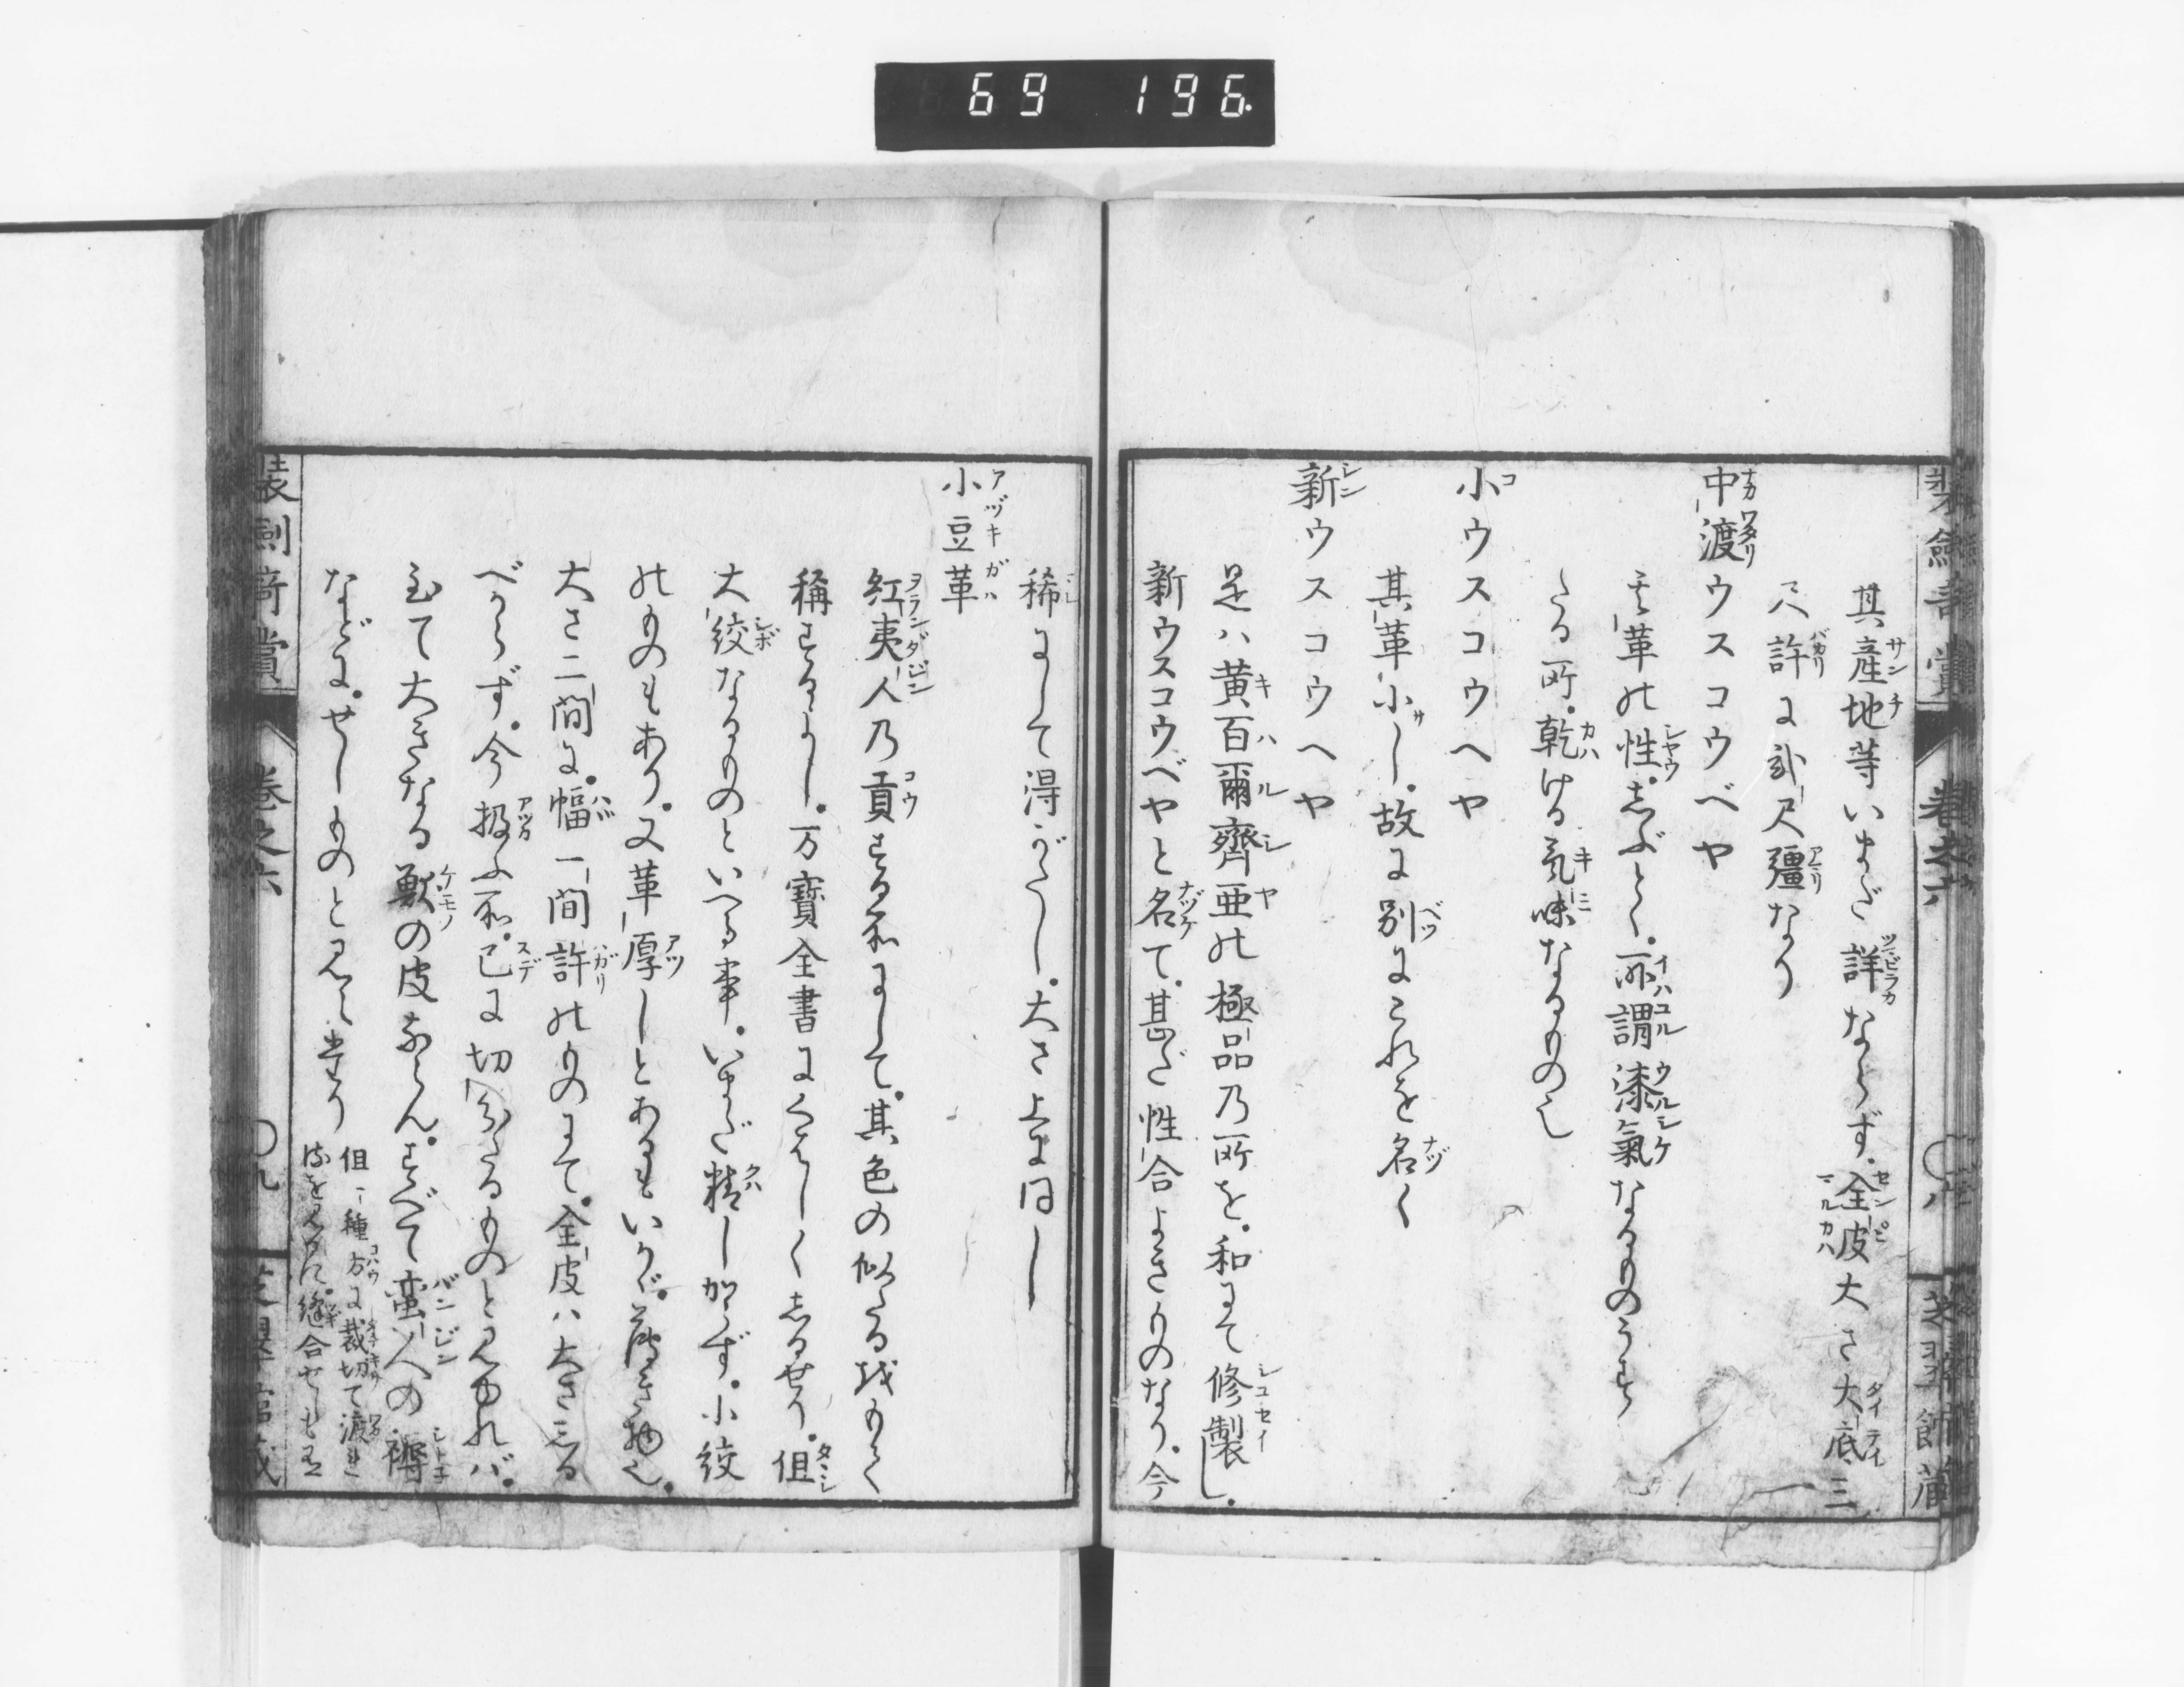 69 196
其産地等いまだ詳ならず。全皮大さ大底三
尺許に弐尺彊なり
中渡ウスコウベヤ
其革の性。しぶとく。所謂漆氣なるものうすく
たる所。乾ける気味なるもの也
小ウスコウヘヤ
其革小し。故に別にこれを名く
新ウスコウヘヤ
是ハ黄百爾齊亜の極品乃所を。和にて修製し。
新ウスコウベヤと名て。甚だ性合よきものなり。今
稀にして得がたし。大さ上に同し
小豆革
紅夷人乃貢する所にして。其色の似たる故もつて
稱するよし。万寶全書にくはしくしるせり。但
大絞なるものといへる事。いまだ精しからず。小絞
のものもあり。又革厚しとあるもいかゞ。薄き物也。
大さ二間に。幅一間許のものにて。全皮ハ大さしる
べからず。今扱ふ所。已に切分たるものと見ゆれバ。
至て大きなる獣の皮ならん。すべて蛮人の褥
などに。せしものと見えたり
但一種方に裁切て渡
縫合せしも
装劍奇賞 卷之六 〇八
装劍奇賞 卷之六 〇九